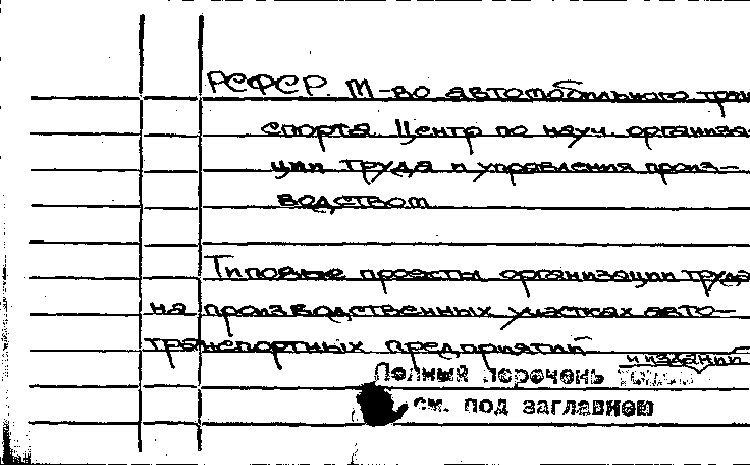 РСФСР. М-во автомобильного тран
спорта. Центр по науч. организа
ции труда и управления произ-
водством
Типовые проекты организации труда
на производственных участках авто-
транспортных предприятий
и изданий
Полный перечень годов
см. под заглавием